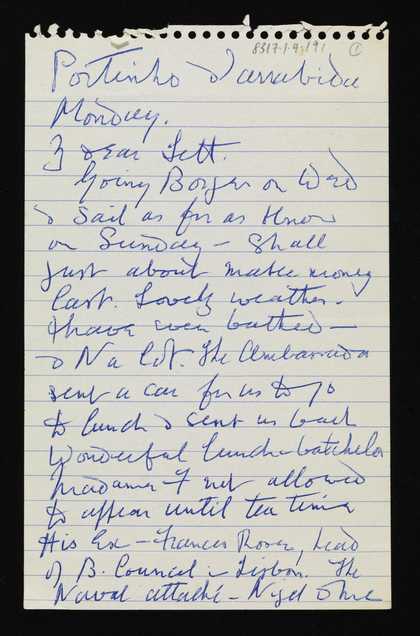 8317.1.9.191
Portinho d'arrabida
Monday.
dear Tett.
Going on Wed
& Sail as far as I know
on Sunday - Shall
just about make money
last. Lovely weather.
I have even bathed -
& N a lot. The Ambassador
sent a car for us to go
to lunch & sent us back
Wonderful lunch - batchelor
Madame F not allowed
to appear until tea time
His Ex - Francis head
of B. Council in Lisbon. The
Naval attaché - Nigel